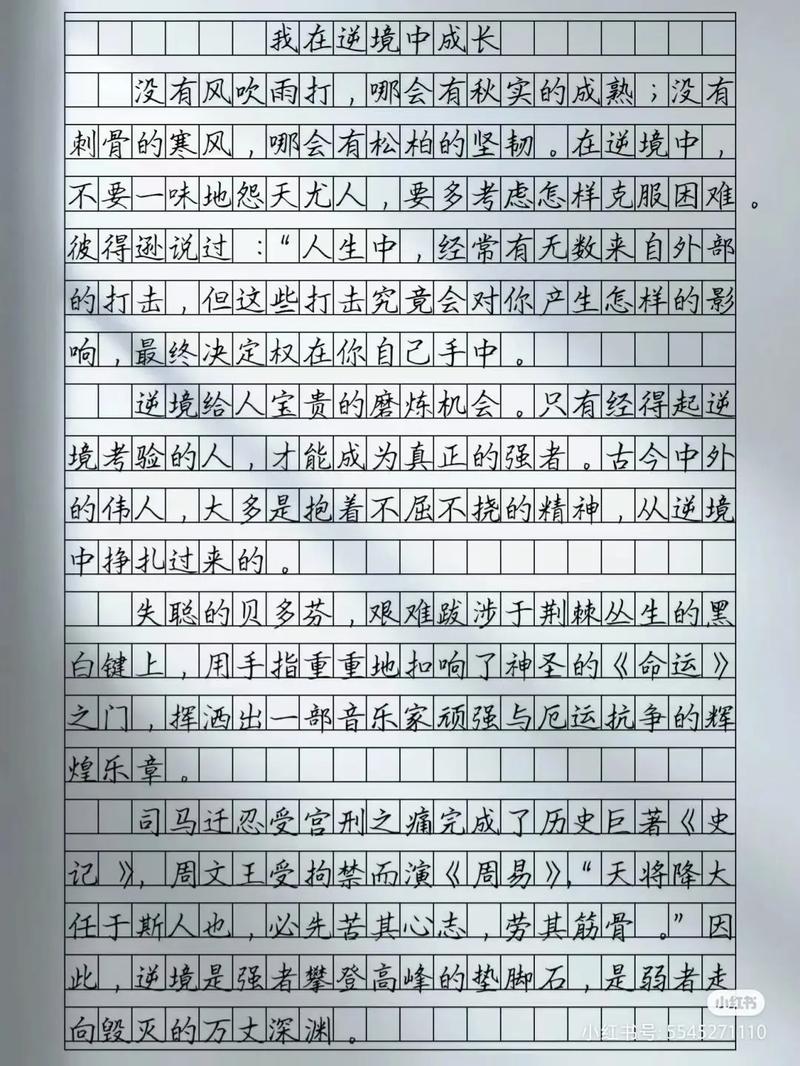 我在逆境中成长
没有风吹雨打，哪会有秋实的成熟；没有
刺骨的寒风，哪会有松柏的坚韧。在逆境中，
不要一味地怨天尤人，要多考虑怎样克服困难。
彼得逊说过：“人生中，经常有无数来自外部
的打击，但这些打击究竟会对你产生怎样的影
响，最终决定权在你自己手中。
逆境给人宝贵的磨炼机会。只有经得起逆
境考验的人，才能成为真正的强者。古今中外
的伟人，大多是抱着不屈不挠的精神，从逆境
中挣扎过来的。
失聪的贝多芬，艰难跋涉于荆棘丛生的黑
白键上，用手指重重地扣响了神圣的《命运》
之门，挥洒出一部音乐家顽强与厄运抗争的辉
煌乐章。
司马迁忍受宫刑之痛完成了历史巨著《史
记》，周文王受拘禁而演《周易》，“天将降大
任于斯人也，必先苦其心志，劳其筋骨。”因
此，逆境是强者攀登高峰的垫脚石，是弱者走
向毁灭的万丈深渊。
小红书
小红书号：5545271110